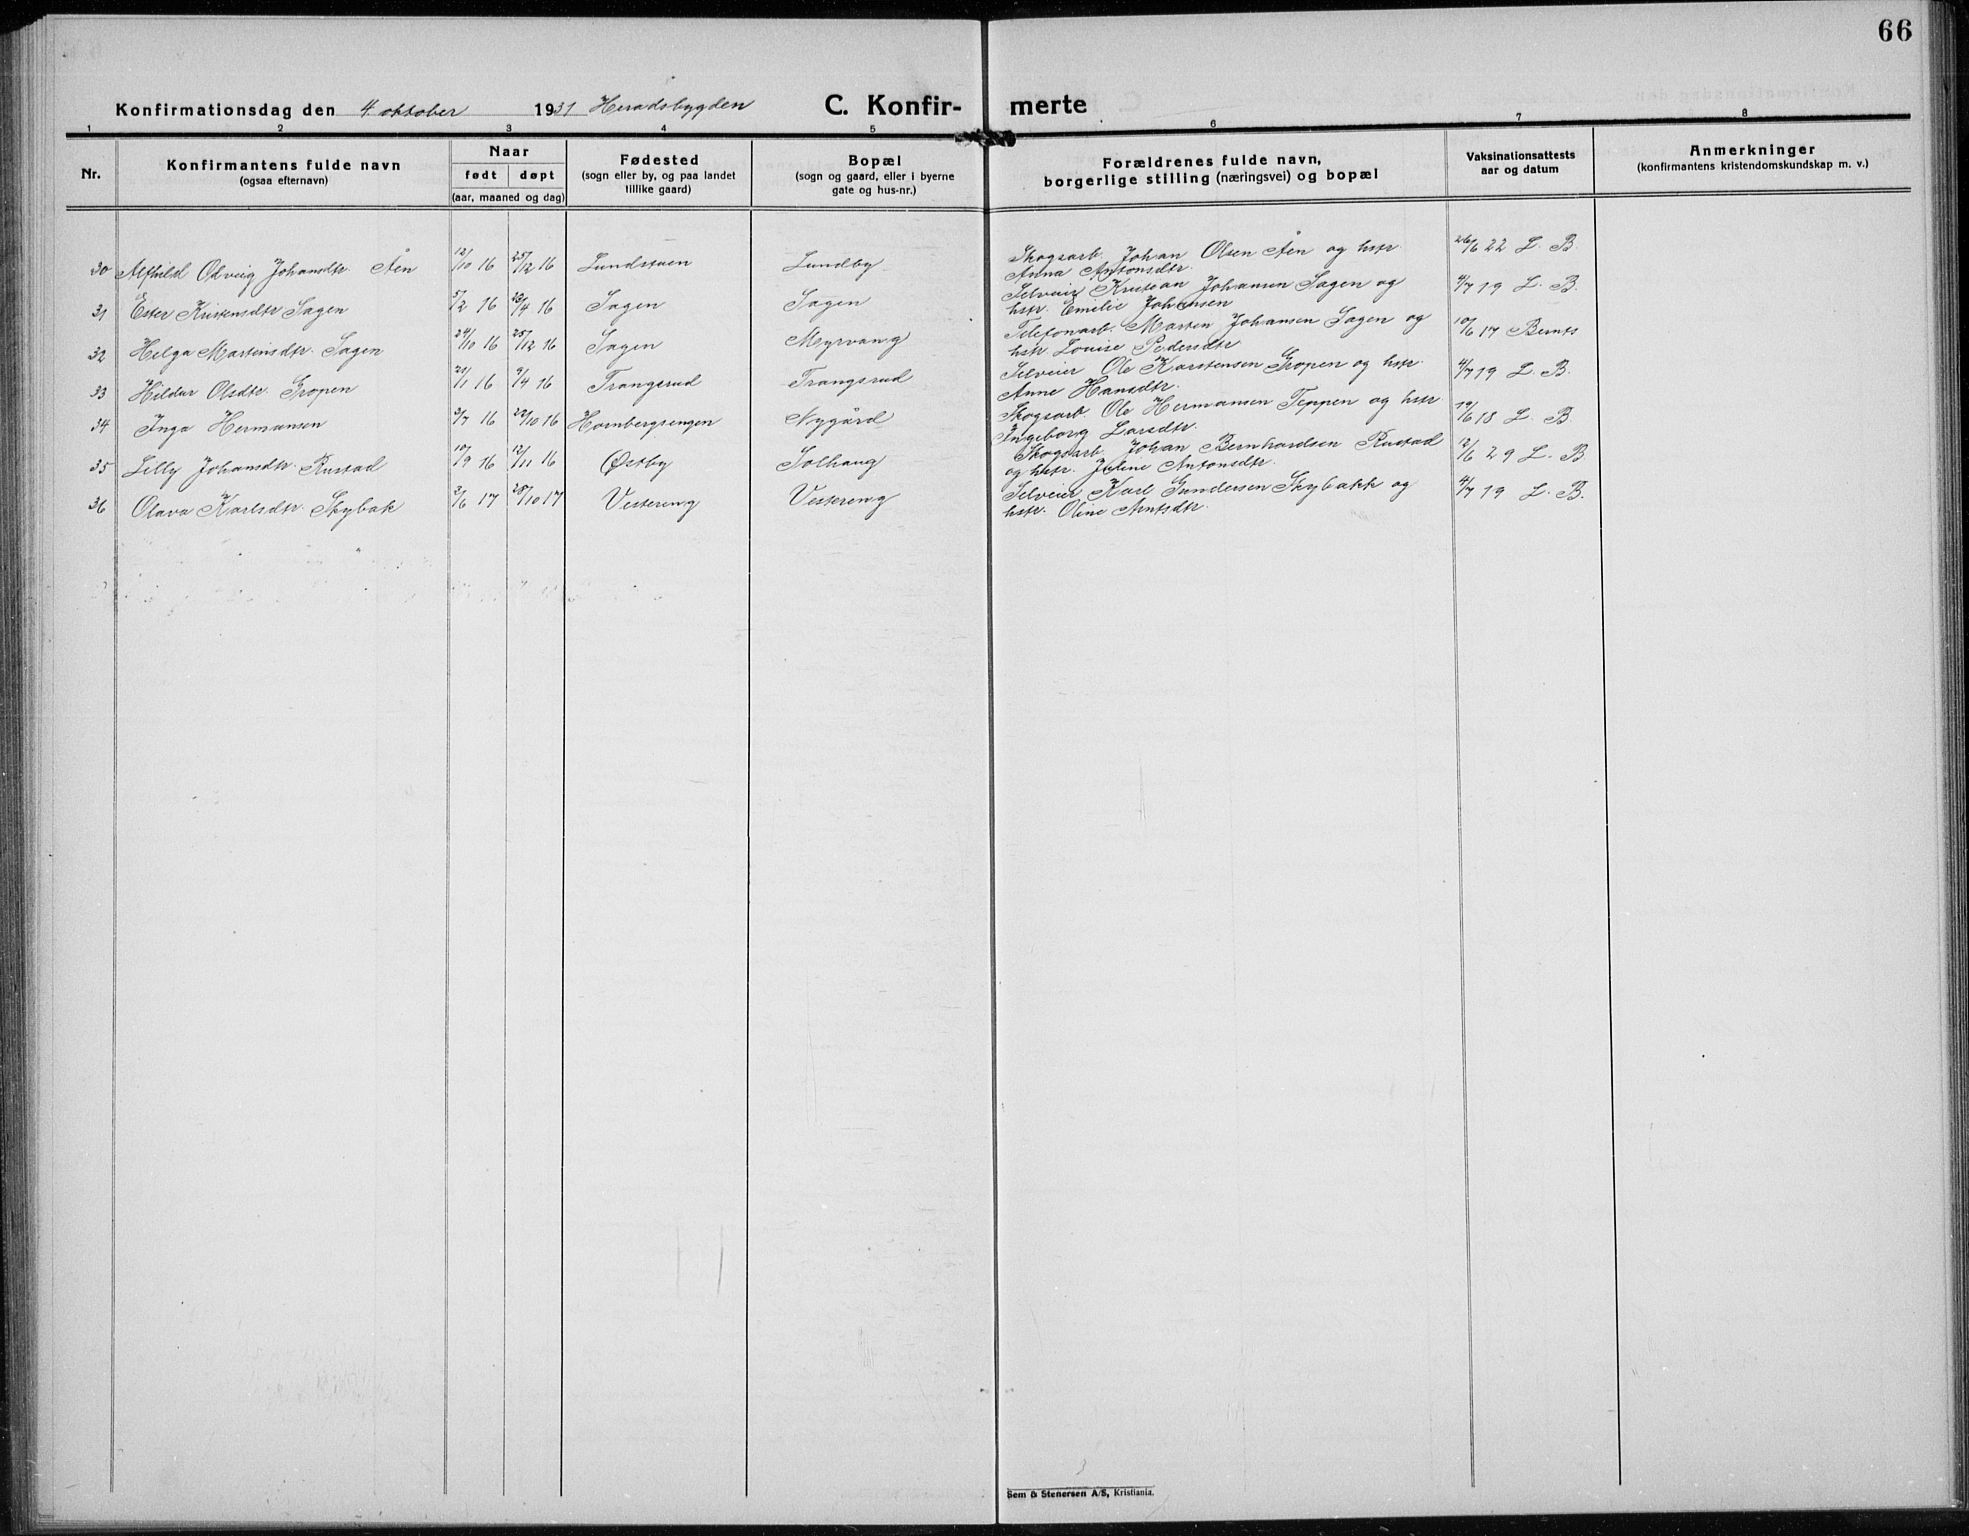 66
Konfirmationsdag den 4. oktober 1931 Heradsbygden C. Konfir- merte
1 2 3 4 5 6 7 8
Nr. Konfirmantens fulde navn (ogsaa efternavn) Naar født døpt (aar, maaned og dag) Fødested (sogn eller by, og paa landet tillike gaard) Bopæl (sogn og gaard, eller i byerne gate og hus-nr.) Forældrenes fulde navn, borgerlige stilling (næringsvei) og bopæl Vaksinationsattests aar og datum Anmerkninger (konfirmantens kristendomskundskap m. v.)
30 Alfhild Odveig Johansdtr. Åen 12/10 16 25/12 16 Lundstuen Lundby Skogsarb. Johan Olsen Åen og hstr. 26/6 22 L. B.
Anna Antonsdtr.
31 Ester Kristensdtr Sagen 5/2 16 23/4 16 Sagen Sagen Selveier Kristian Johansen Sagen og 4/7 19 L. B.
hstr. Emilie Johansen
32 Helga Martensdtr. Sagen 24/10 16 25/12 16 Sagen Myrvang Telefonarb. Marten Johansen Sagen og 10/6 17 Bernts
hstr. Louise Pedersdtr
33 Hildur Olsdtr. Gropen 21/1 16 9/4 16 Trangsrud Trangsrud Selveier Ole Karstensen Gropen og hstr. 4/7 19 L. B.
Anne Hansdtr.
34 Inga Hermansen 3/7 16 22/10 16 Hornbergsengen Nygård Skogsarb. Ole Hermansen Teppen og hstr. 19/6 18 L. B.
Ingeborg Larsdtr.
35 Lilly Johansdtr. Rustad 10/9 16 12/11 16 Østby Solhaug Skogsarb. Johan Bernhardsen Rustad 12/6 29 L. B.
og hstr. Jeline Antonsdtr.
36 Olava Karlsdtr. Skybak 3/6 17 28/10 17 Vestereng Vestereng Selveier Karl Gundersen Skybakk og 4/7 19 L. B.
hstr. Oline Arntsdtr.
Sem & Stenersen A/S, Kristiania.